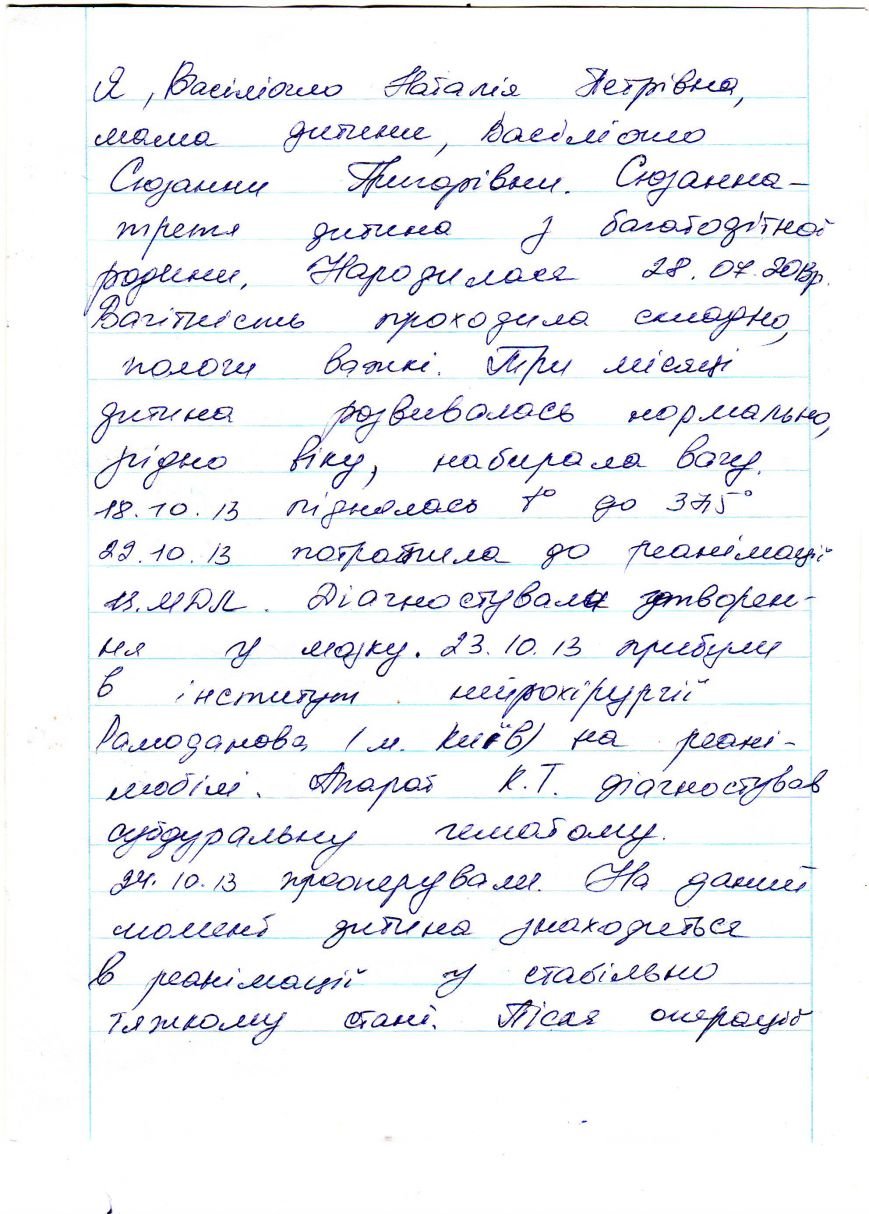 Я, Васіліогло Наталія Петрівна,
мама дитини, Васіліогло
Сюзанни Григорівни. Сюзанна –
третя дитина з багатодітної
родини. Народилася 28.07.2013р.
Вагітність проходила складно,
пологи важкі. Три місяці
дитина розвивалась нормально,
згідно віку, набирала вагу.
18.10.13 піднялась t° до 37,5°
22.10.13 потрапила до реанімації
13.МДЛ. Діагностували утворен-
ня у мозку. 23.10.13 прибули
в інститут нейрохірургії
Рамоданова (м. Київ) на реані-
мобілі. Апарат К.Т. діагностував
субдуральну гематому.
24.10.13 прооперували. На даний
момент дитина знаходиться
в реанімації у стабільно
тяжкому стані. Після операції